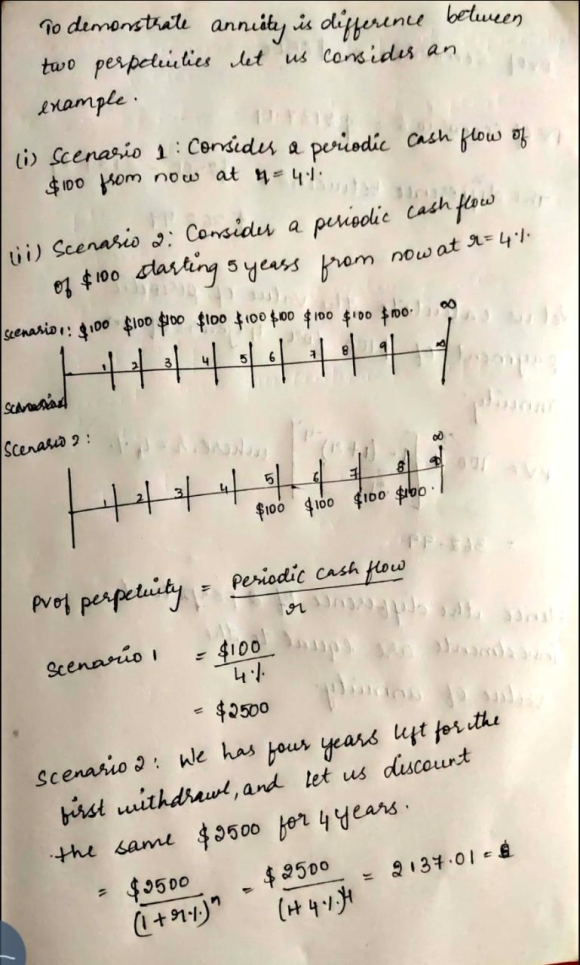 To demonstrate annuity is difference between
two perpetuities let us consider an
example.
(i) Scenario 1: Consider a periodic cash flow of
$100 from now at r = 4%.
(ii) Scenario 2: Consider a periodic cash flow
of $100 starting 5 years from now at r = 4%.
Scenario 1: $100 $100 $100 $100 $100 $100 $100 $100 $100. ∞
1 2 3 4 5 6 7 8 9 ∞
Scenario 2:
∞
1 2 3 4 5 6 7 8
$100 $100 $100 $100.
PV of perpetuity = Periodic cash flow
r
Scenario 1 = $100
4%
= $2500
Scenario 2: We has four years left for the
first withdrawl, and let us discount
the same $2500 for 4 years.
= $2500 = $2500 = 2137.01 =
(1+r%)ⁿ (1+4%)⁴